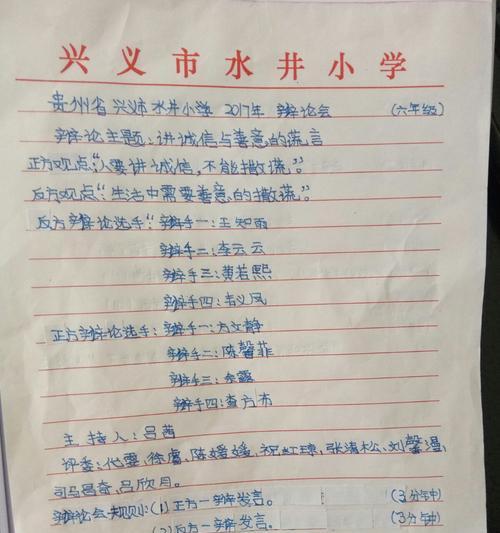 兴义市水井小学
贵州省兴义市水井小学2017年 辩论会 (六年级)
辩论主题:讲诚信与善意的谎言
正方观点:“人要讲诚信,不能撒谎”。
反方观点:“生活中需要善意的撒谎”。
反方辩论选手: 辩手一:王知雨
辩手二:李云云
辩手三:黄若熙
辩手四:韦义凤
正方辩论选手:辩手一:方文静
辩手二:陈馨菲
辩手三:余露
辩手四:查方布
主持人:吕茜
评委:徐睿,陈媛媛,祝虹琼,张清松,刘馨
司马昌奇,吕欣月。
辩论会规则:(1)正方一辩发言。 (3分钟)
(2)反方一辩发言。 (3分钟)